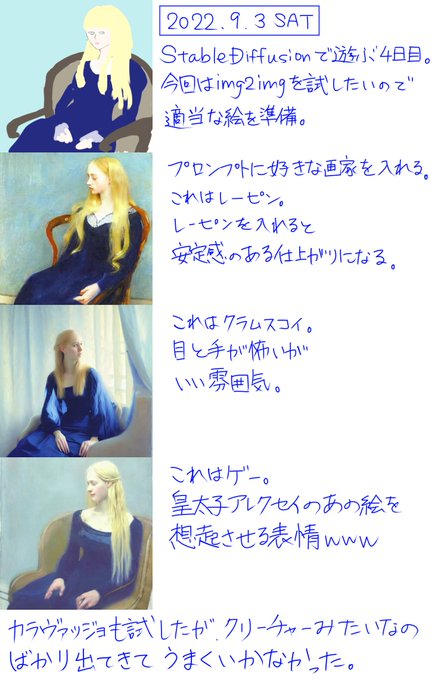 2022.9.3 SAT
StableDiffusionで遊ぶ4日目。
今回はimg2imgを試したいので
適当な絵を準備。
プロンプトに好きな画家を入れる。
これはレーピン。
レーピンを入れると
安定感のある仕上がりになる。
これはクラムスコイ。
目と手が怖いが
いい雰囲気。
これはゲー。
皇太子アレクセイのあの絵を
想起させる表情www
カラヴァッジョも試したが、クリーチャーみたいなの
ばかり出てきてうまくいかなかった。